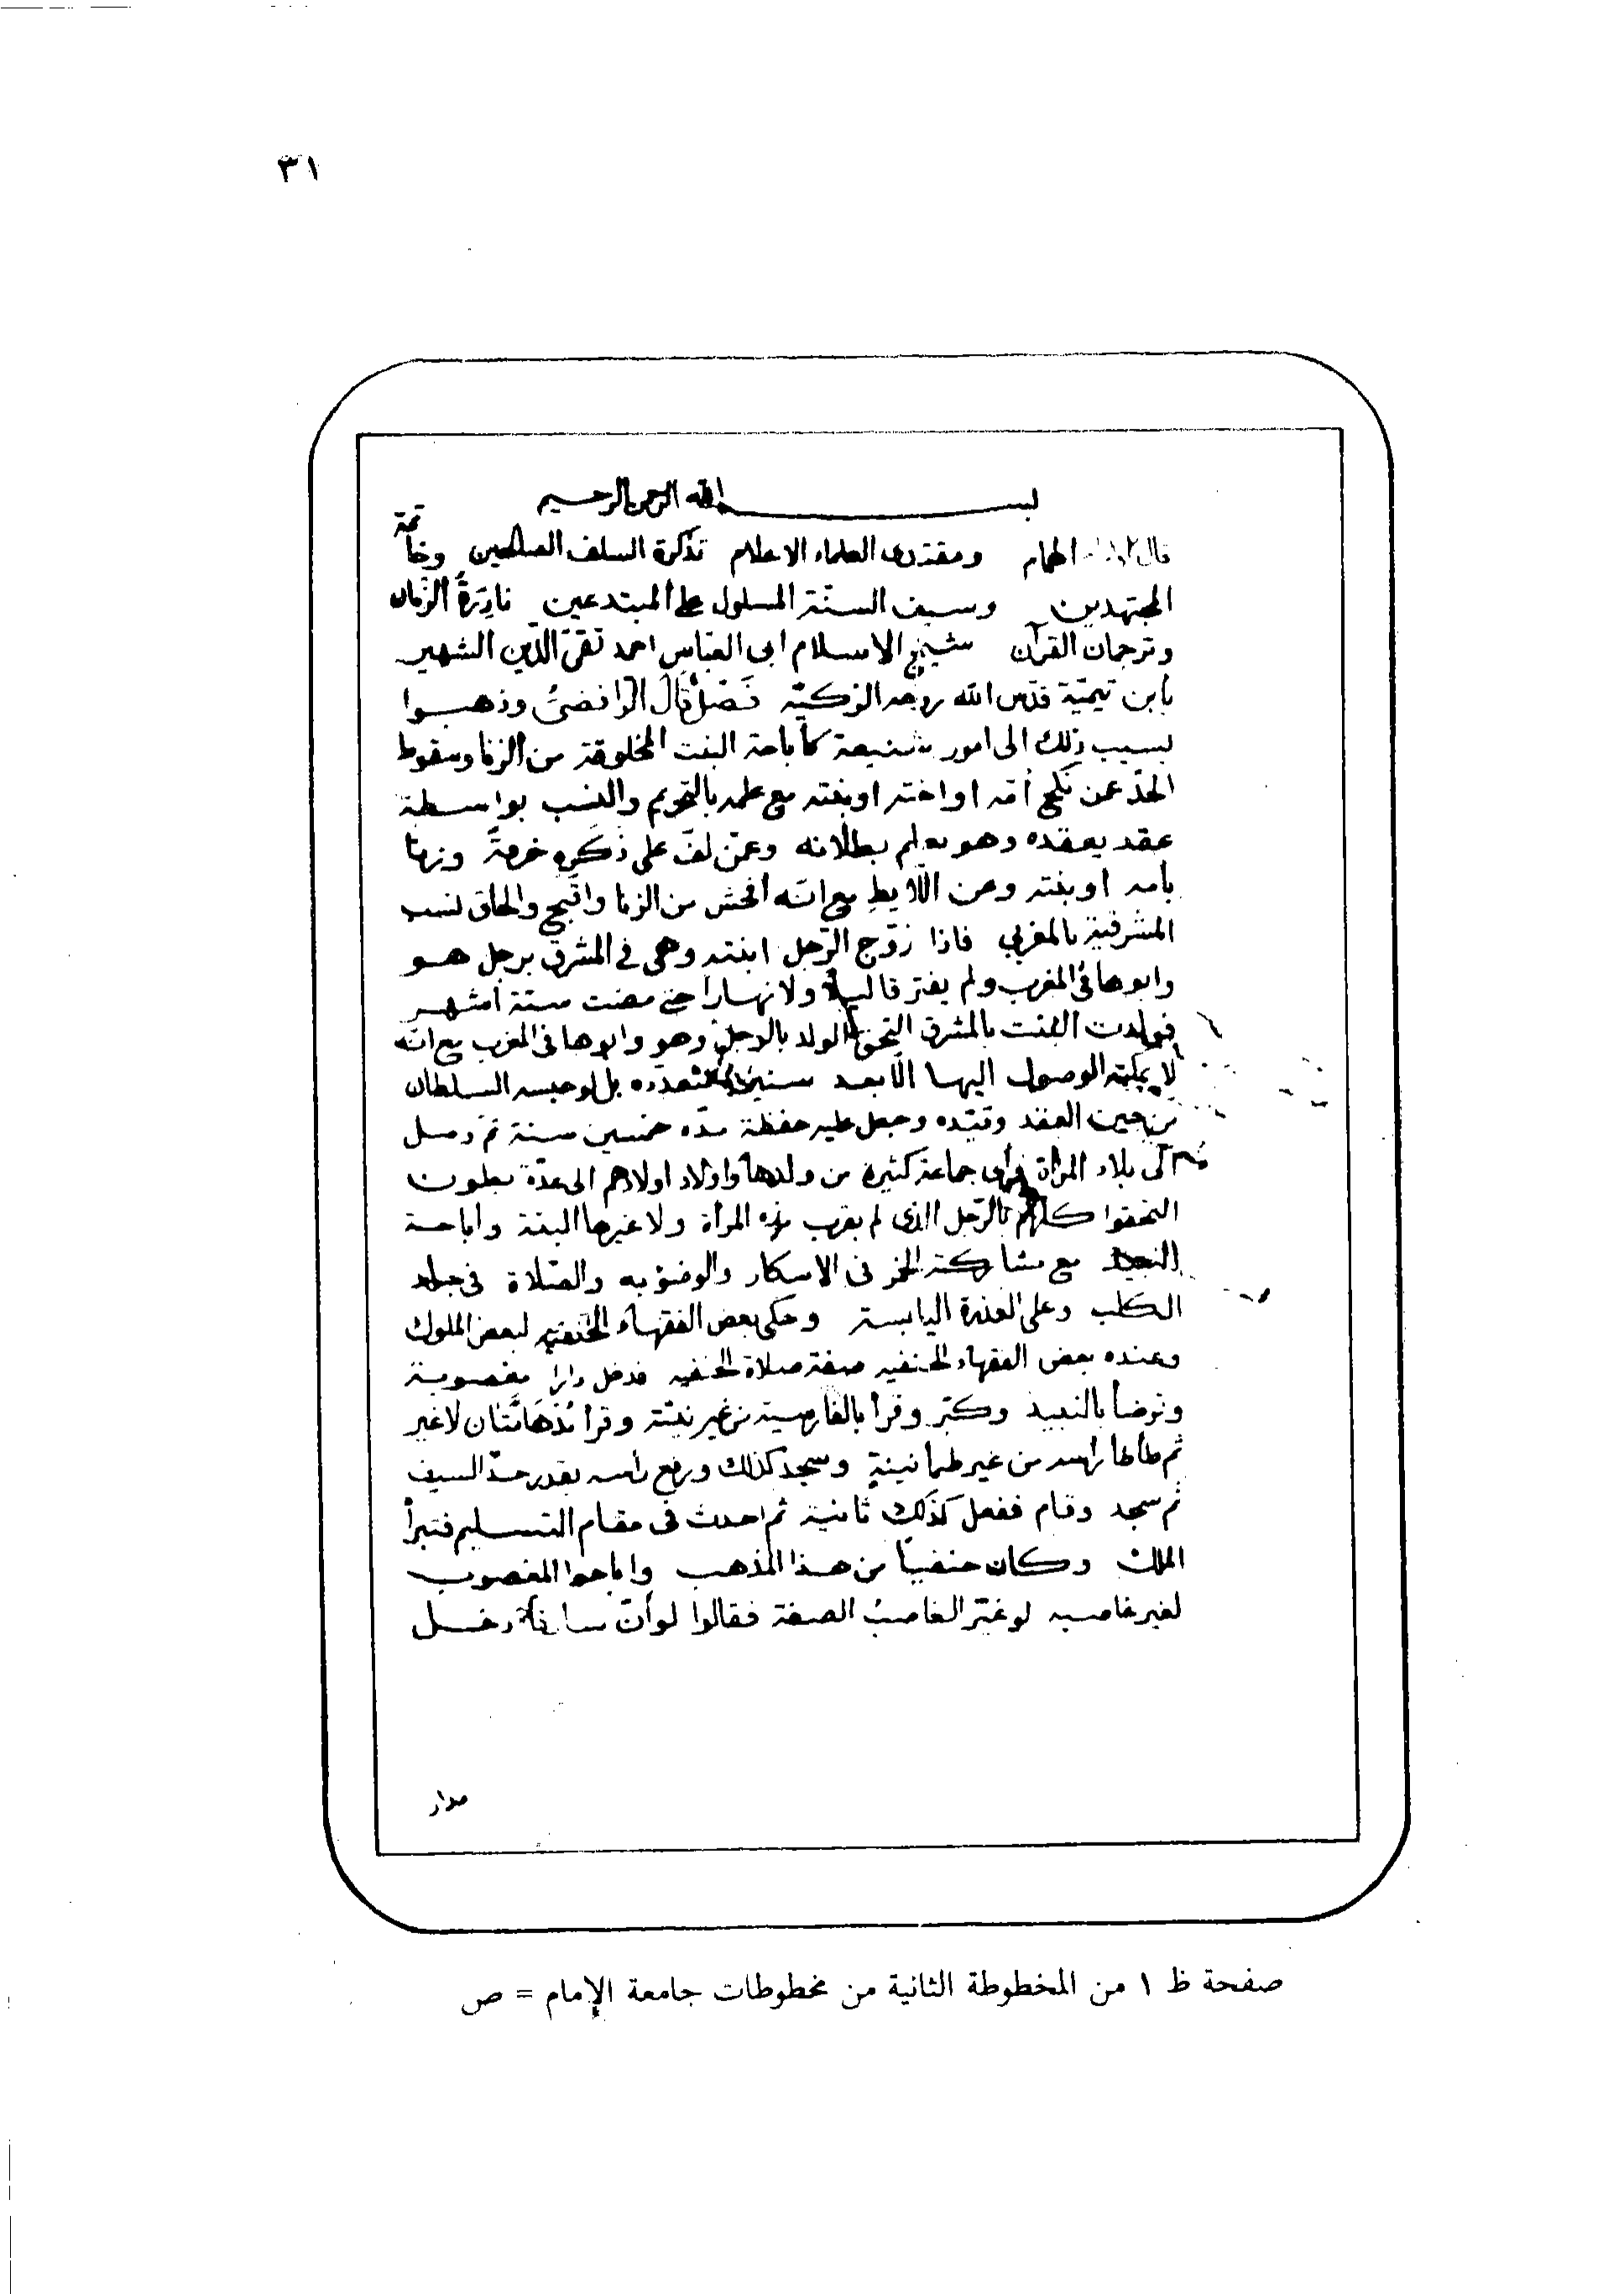 ٣١
بسم الله الرحمن الرحيم
قال الهمام ومقتدى العلماء الاعلام تذكرة السلف الصالحين وخاتمة
المجتهدين وسيف السنة المسلول على المبتدعين نادرة الزمان
وترجمان القرآن شيخ الاسلام ابى العباس احمد تقىّ الدّين الشهير
بابن تيميّة قدّس الله روحه الزكيّة فَصْل قَالَ الرّافضىُّ وذهبوا
بسبب ذلك الى امور شنيعة كأباحة البنت المخلوقة من الزنا وسقوط
الحدّ عمن نكح أمّه او اخته او بنته مع علمه بالتحريم والنسب بواسطة
عقد يعقده وهو يعلم بطلانه وعمّن لفّ على ذكَرِهِ خرقةً وزنا
بامه او بنته وعن اللّايط مع انّه أفحش من الزنا واقبح والحاق نسب
المشرقية بالمغربي فاذا زوّج الرّجل ابنته وهى في المشرق برجل هو
وابوها فى المغرب ولم يفترقا ليلاً ولا نهاراً حتى مضت ستة أشهر
فولدت البنت بالمشرق التحق الولد بالرجل وهو وابوها فى المغرب مع انّه
لا يمكنه الوصول اليها الّا بعد سنين متعدّده بل لو حبسه السلطان
من حين العقد وقيّده وجعل عليه حفظة مدّه خمسين سنة ثم وصل
الى بلاد المرأة فرأى جماعة كثيرة من ولدها واولاد اولادهم الى عدّة بطون
التحقوا كلّهم بالرّجل الذى لم يقرب هذه المرأة ولا غيرها البتة واباحة
النبيذ مع مشاركته الخمر فى الاسكار والوضؤ به والصّلاة فى جلد
الكلب وعلى العذرة اليابسة وحكى بعض الفقهاء الحنفيه لبعض الملوك
وعنده بعض الفقهاء الحنفيه صفة صلاة الحنفيه فدخل دارا مغصوبة
وتوضأ بالنبيذ وكبّر وقرأ بالفارسية من غير نيّة وقرأ مُدْهَامَّتَان لا غير
ثم طأطأ رأسه من غير طمأنينةٍ وسجد كذلك ورفع رأسه بقدر حدّ السيف
ثم سجد وقام ففعل كذلك ثانية ثم احدث فى مقام التسليم فتبرأ
الملك وكان حنفيّاً من هذا المذهب واباحوا المغصوب
لغير غاصبه لو غيّر الغاصبُ الصفة فقالوا لو أنّ سارقاً دخل
مدار
صفحة ظ ١ من المخطوطة الثانية من مخطوطات جامعة الإمام = ص